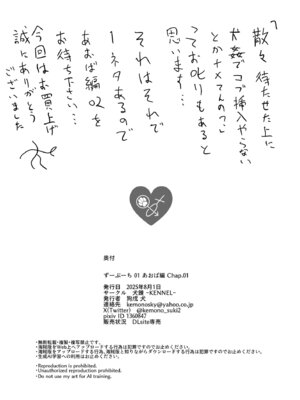 「散々待たせた上に
姦でコブ挿入やらない
とかナメてんの?」
ってお叱りもあると
思います…
それはそれで
1ネタあるので
あおば編02を
お待ち下さい…
今回はお買上げ
誠にありがとう
ございました
奥付
ずーぷーち 01 あおば編 Chap.01
発行日 2025年8月1日
サークル 犬鎌 -KENNEL-
発行者 狗成 犬
連絡先 kemonosky@yahoo.co.jp
X(Twitter) @kemono_suki2
pixiv ID 1360847
販売状況 DLsite専売
・無断転載・複製・複写禁止です。
・海賊版をWeb上へアップロードする行為は犯罪ですのでお止めください。
・海賊版をアップロードする行為、海賊版と知りながらダウンロードする行為は犯罪ですのでお止めください。
・生成AI学習への利用はお止めください。
・Reproduction is prohibited.
・Unauthorized reproduction prohibited.
・Do not use my art for AI training.